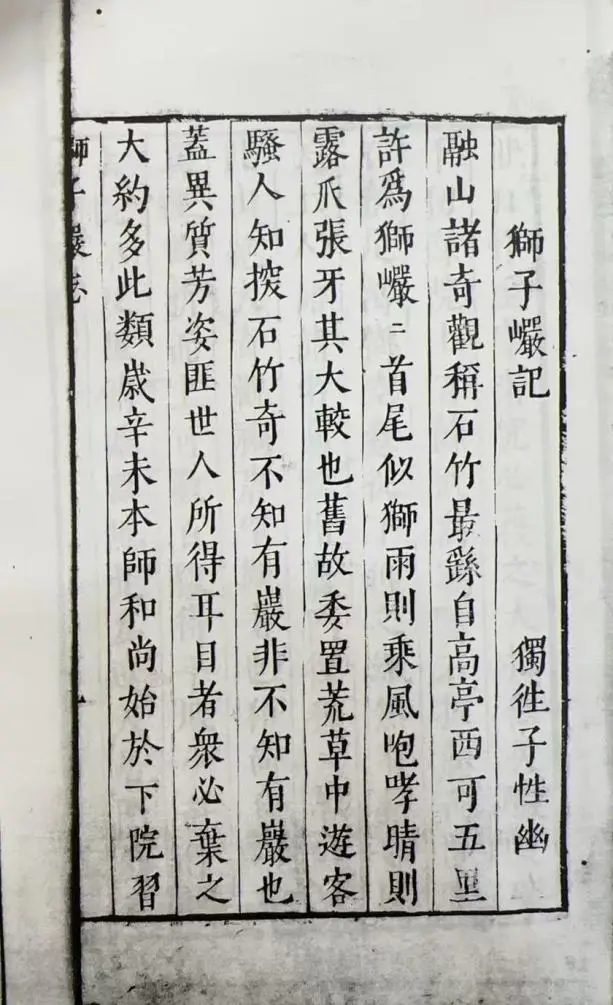 獅子巖記 獨徃子性幽
融山諸奇觀稱石竹最繇自高亭西可五里
許爲獅巖二首尾似獅雨則乘風咆哮晴則
露爪張牙其大較也舊故委置荒草中遊客
騷人知搜石竹奇不知有巖非不知有巖也
蓋異質芳姿匪世人所得耳目者衆必棄之
大約多此類歲辛未本師和尚始於下院習
獅子巖志